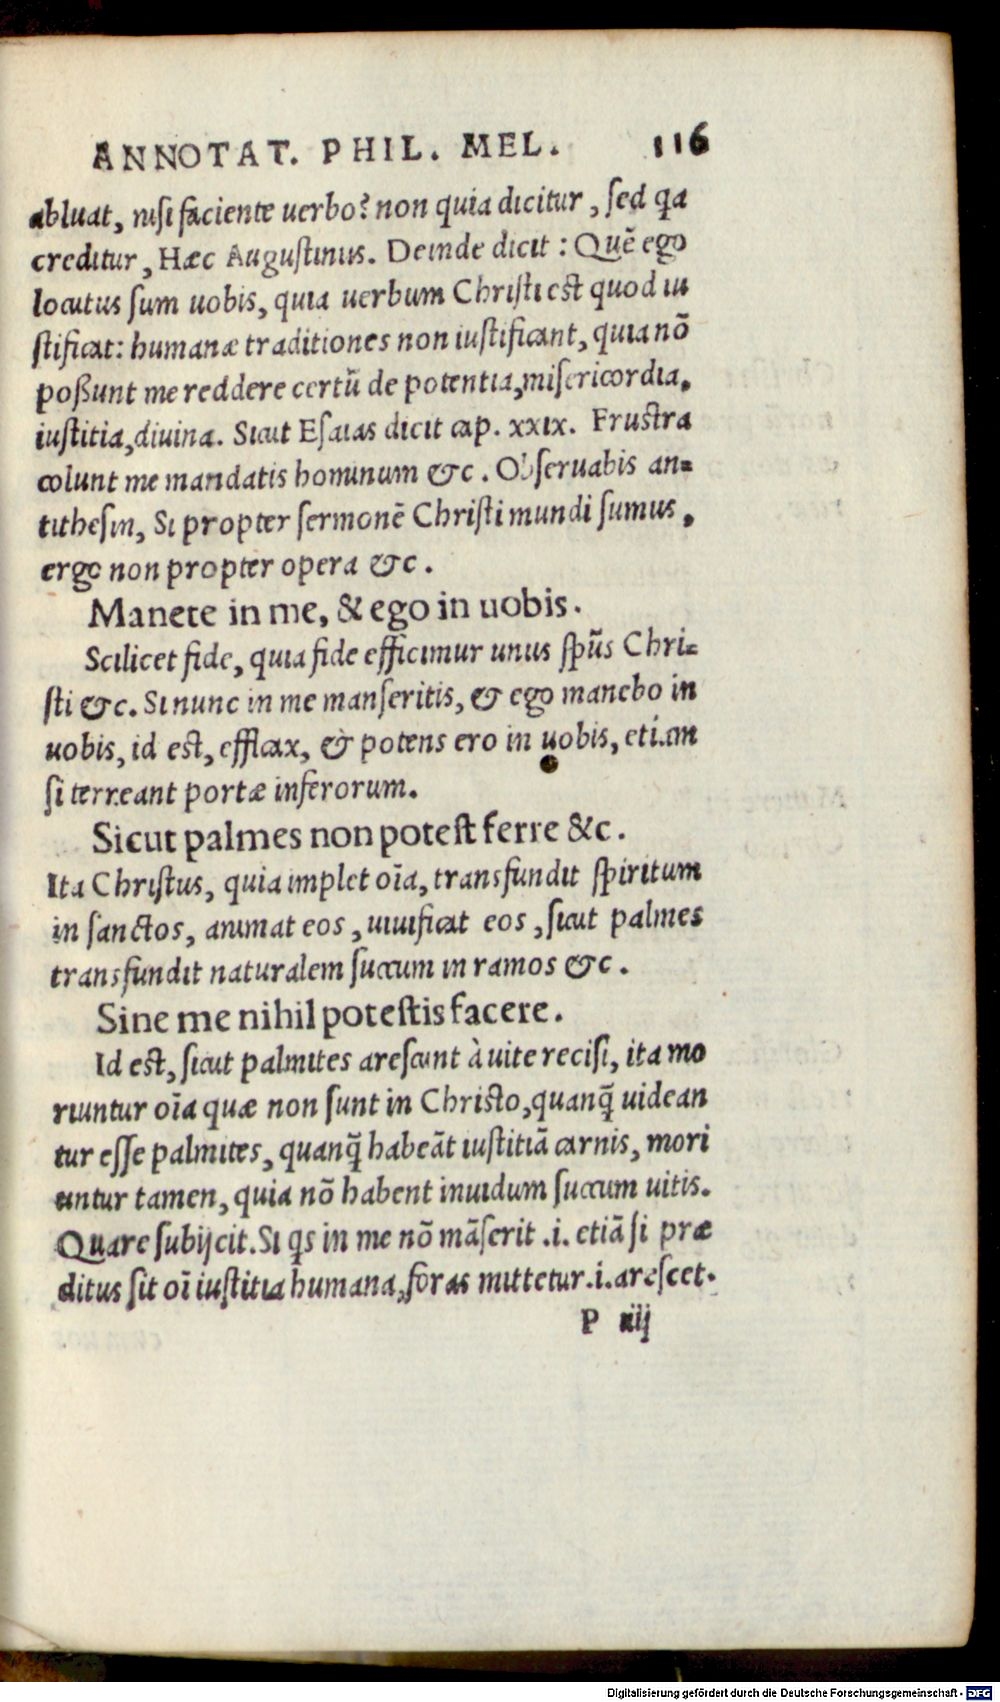 ANNOTAT. PHIL. MEL. 116
abluat, nisi faciente uerbo? non quia dicitur, sed qa
creditur, Hæc Augustinus. Deinde dicit: Quẽ ego
locutus sum uobis, quia uerbum Christi est quod iu
stificat: humanæ traditiones non iustificant, quia nõ
poßunt me reddere certũ de potentia, misericordia,
iustitia, diuina. Sicut Esaias dicit cap. xxix. Frustra
colunt me mandatis hominum &c. Obseruabis an=
tithesin, Si propter sermonẽ Christi mundi sumus,
ergo non propter opera &c.
Manete in me, & ego in uobis.
Scilicet fide, quia fide efficimur unus spũs Chri=
sti &c. Si nunc in me manseritis, & ego manebo in
uobis, id est, efficax, & potens ero in uobis, etiam
si terreant portæ inferorum.
Sicut palmes non potest ferre &c.
Ita Christus, quia implet oĩa, transfundit spiritum
in sanctos, animat eos, uiuificat eos, sicut palmes
transfundit naturalem succum in ramos &c.
Sine me nihil potestis facere.
Id est, sicut palmites arescunt à uite recisi, ita mo
riuntur oĩa quæ non sunt in Christo, quanq̃ uidean
tur esse palmites, quanq̃ habeãt iustitiã carnis, mori
untur tamen, quia nõ habent inuidum succum uitis.
Quare subijcit. Si qs in me nõ mãserit .i. etiã si præ
ditus sit oĩ iustitia humana, foras mittetur .i. arescet.
P iiij
Digitalisierung gefördert durch die Deutsche Forschungsgemeinschaft - DFG